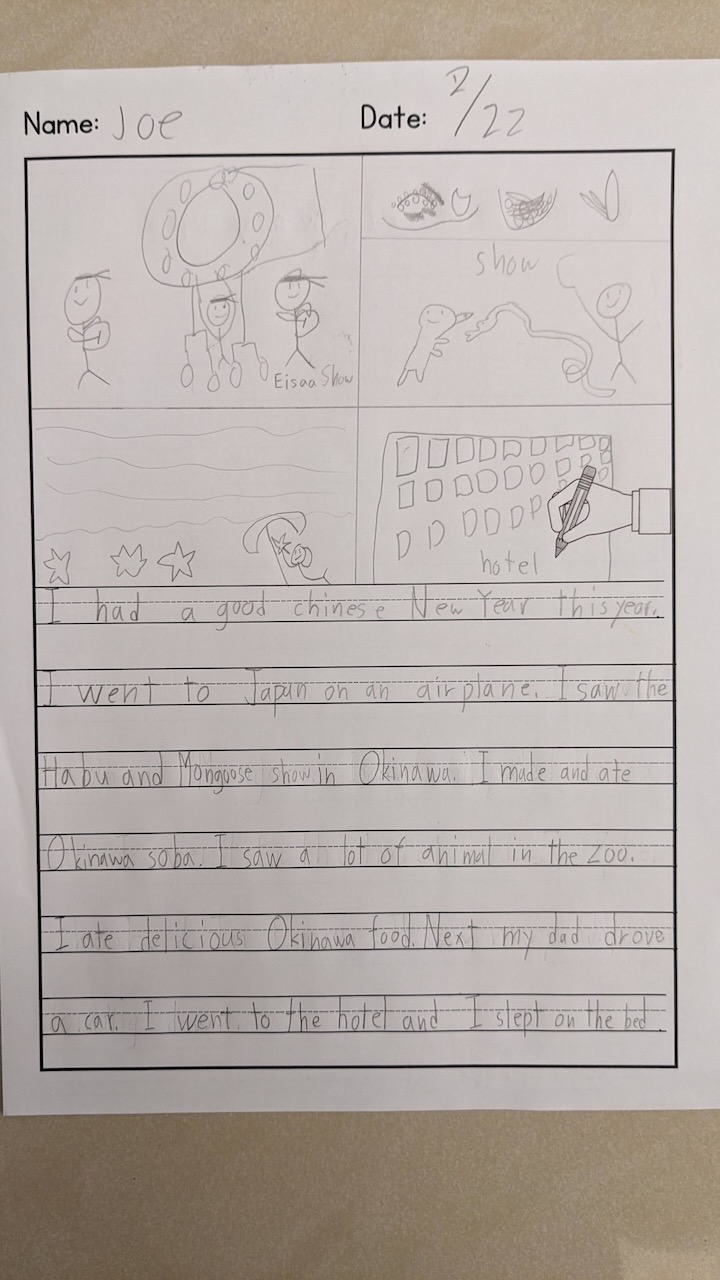 Name: Joe
Date: 2/22
Eisaa Show
show
hotel
I had a good chinese New Year this year.
I went to Japan on an airplane. I saw the
Habu and Mongoose show in Okinawa. I made and ate
Okinawa soba. I saw a lot of animal in the zoo.
I ate delicious Okinawa food. Next my dad drove
a car. I went to the hotel and I slept on the bed.